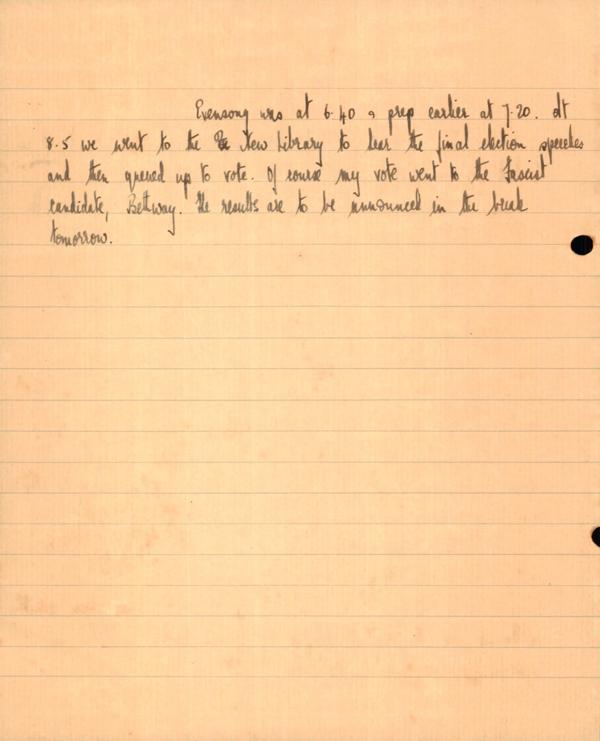 Evensong was at 6.40 & prep earlier at 7.20. At
8.5 we went to the New Library to hear the final election speeches
and then queued up to vote. Of course my vote went to the Fascist
candidate, Bettway. The results are to be announced in the break
tomorrow.